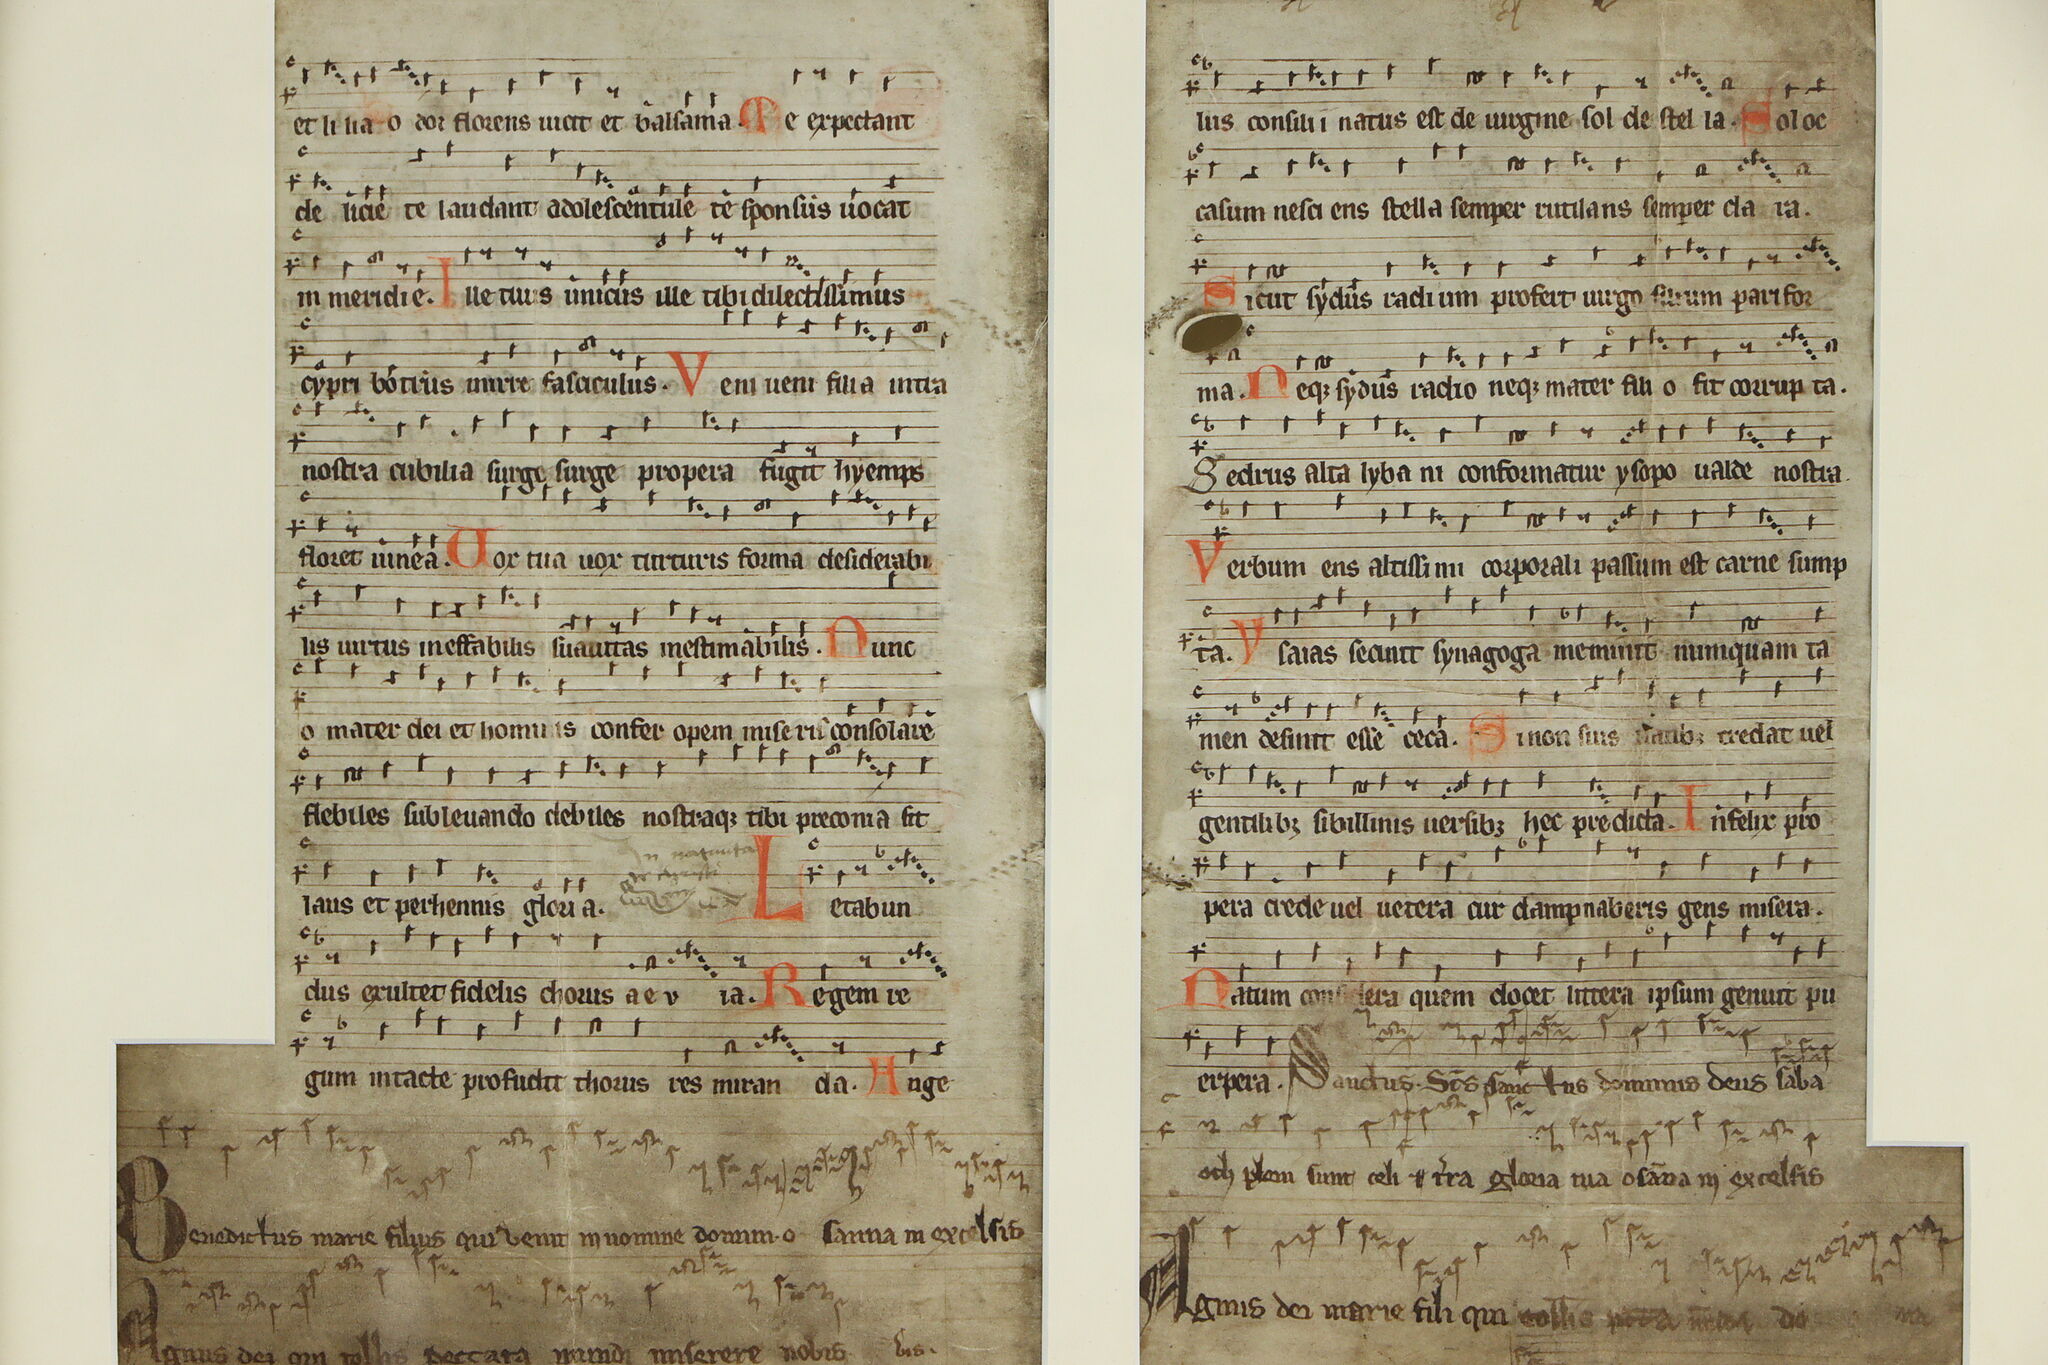 et lilia odor florens uicit et balsama. Te expectant
delicie te laudant adolescentule te sponsus uocat
in meridie. Ille tuus unicus ille tibi dilectissimus
cypri botrus mirre fasciculus. Veni ueni filia intra
nostra cubilia surge surge propera fugit hyemps
floret uinea. Uox tua uox turturis forma desiderabi
lis uirtus ineffabilis suauitas inestimabilis. Nunc
o mater dei et hominis confer opem miseris consolare
flebiles subleuando debiles nostraqꝫ tibi preconia sit
laus et perhennis gloria. Letabun
dus exultet fidelis chorus aeuia. Regem re
gum intacte profudit thorus res miranda. Ange
Benedictus marie filius qui venit in nomine domini. osanna in excelsis
Agnus dei qui tollis peccata mundi miserere nobis. bis.
lius consilii natus est de uirgine sol de stella. Sol oc
casum nesciens stella semper rutilans semper clara.
Sicut sydus radium profert uirgo filium pari for
ma. Neqꝫ sydus radio neqꝫ mater filio fit corrupta.
Sedrus alta lybani conformatur ysopo ualde nostra.
Verbum ens altissimi corporali passum est carne sump
ta. Ysaias cecinit synagoga meminit numquam ta
men desinit esse ceca. Si non suis uatibꝫ credat uel
gentilibꝫ sibillinis uersibꝫ hec predicta. Infelix pro
pera crede uel uetera cur dampnaberis gens misera.
Natum considera quem docet littera ipsum genuit pu
erpera. Sanctus. Scs sanctus dominus deus saba
oth pleni sunt celi et tr̄ra gloria tua osāna in excelsis
Agnus dei marie fili qui tollis